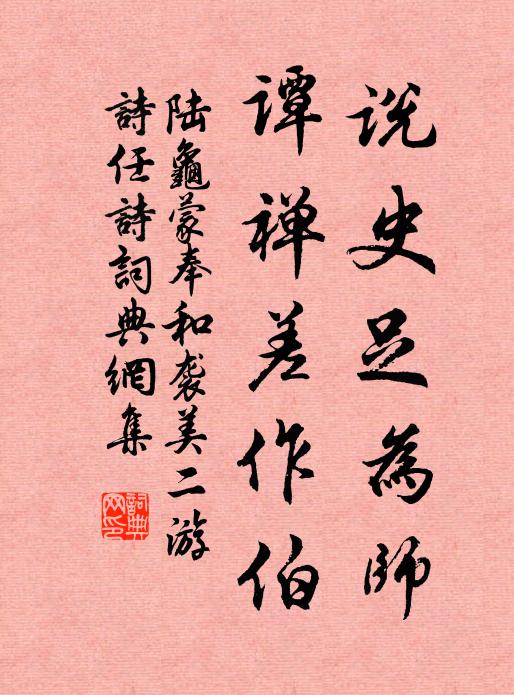 説史足為師
譚禅差作伯
陆龜蒙奉和袭美二游
詩任詩詞典網集
詞典网印